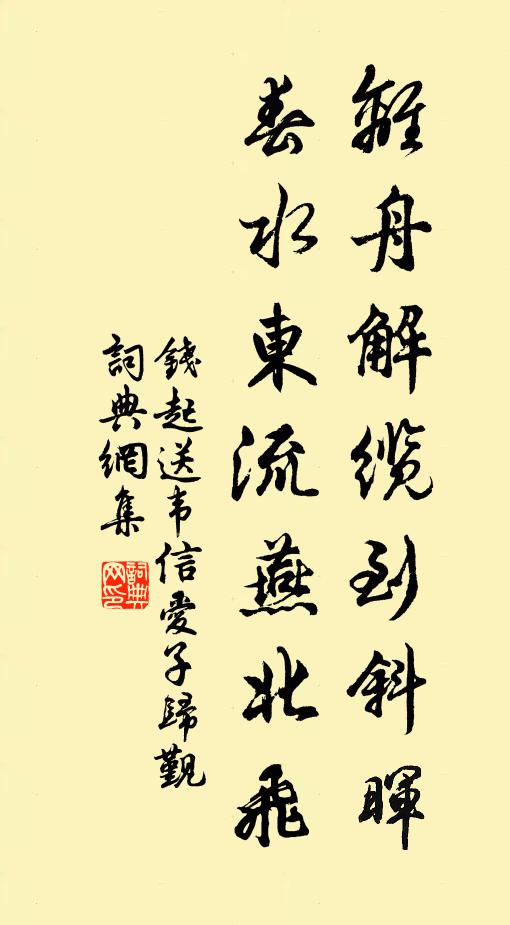 離舟解缆到斜暉
春水東流燕北飛
錢起送韦信愛子歸覲
詞典網集
詞典网印